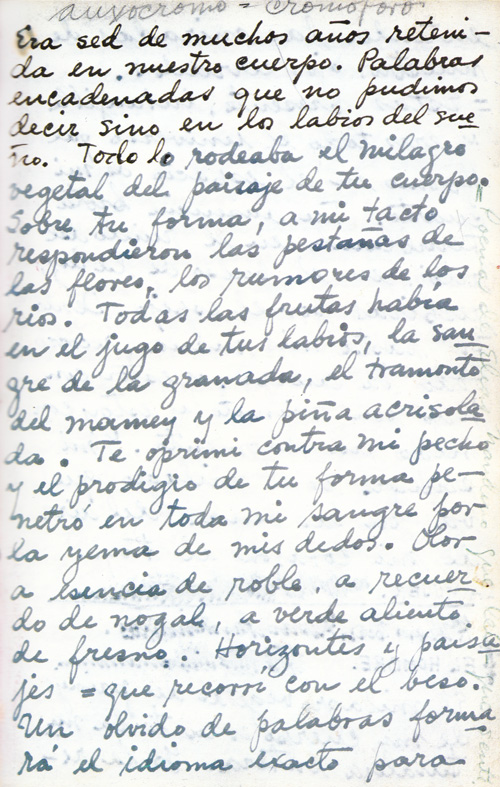 auxocromo = cromoforo
Era sed de muchos años reteni-
da en nuestro cuerpo. Palabras
encadenadas que no pudimos
decir sino en los labios del sue
ño. Todo lo rodeaba el milagro
vegetal del paisaje de tu cuerpo.
Sobre tu forma, a mi tacto
respondieron las pestañas de
las flores, los rumores de los
rios. Todas las frutas había
en el jugo de tus labios, la san
gre de la granada, el tramonto
del mamey y la piña acrisola
da. Te oprimí contra mi pecho
y el prodigio de tu forma pe-
netró en toda mi sangre por
la yema de mis dedos. Olor
a esencia de roble, a recuer
do de nogal, a verde aliento
de fresno. Horizontes y paisa
jes = que recorrí con el beso.
Un olvido de palabras forma
rá el idioma exacto para